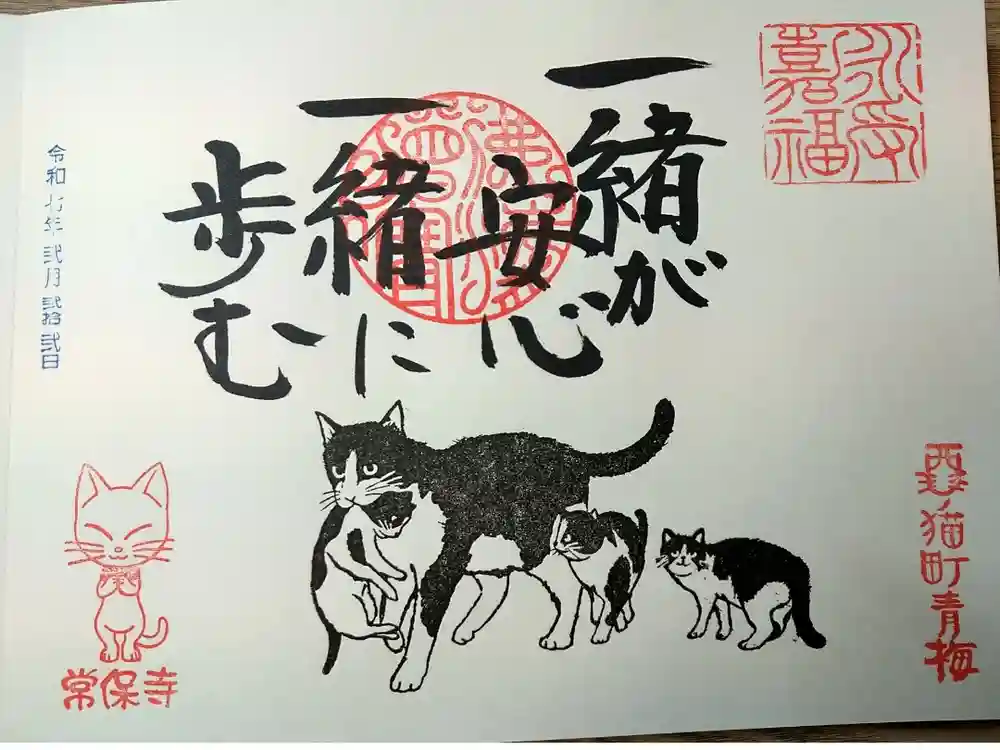 永受
嘉福
一緒が
安心
一緒に
歩む
佛法
僧寶
猫町青梅
令和七年弐月弐拾弐日
常保寺